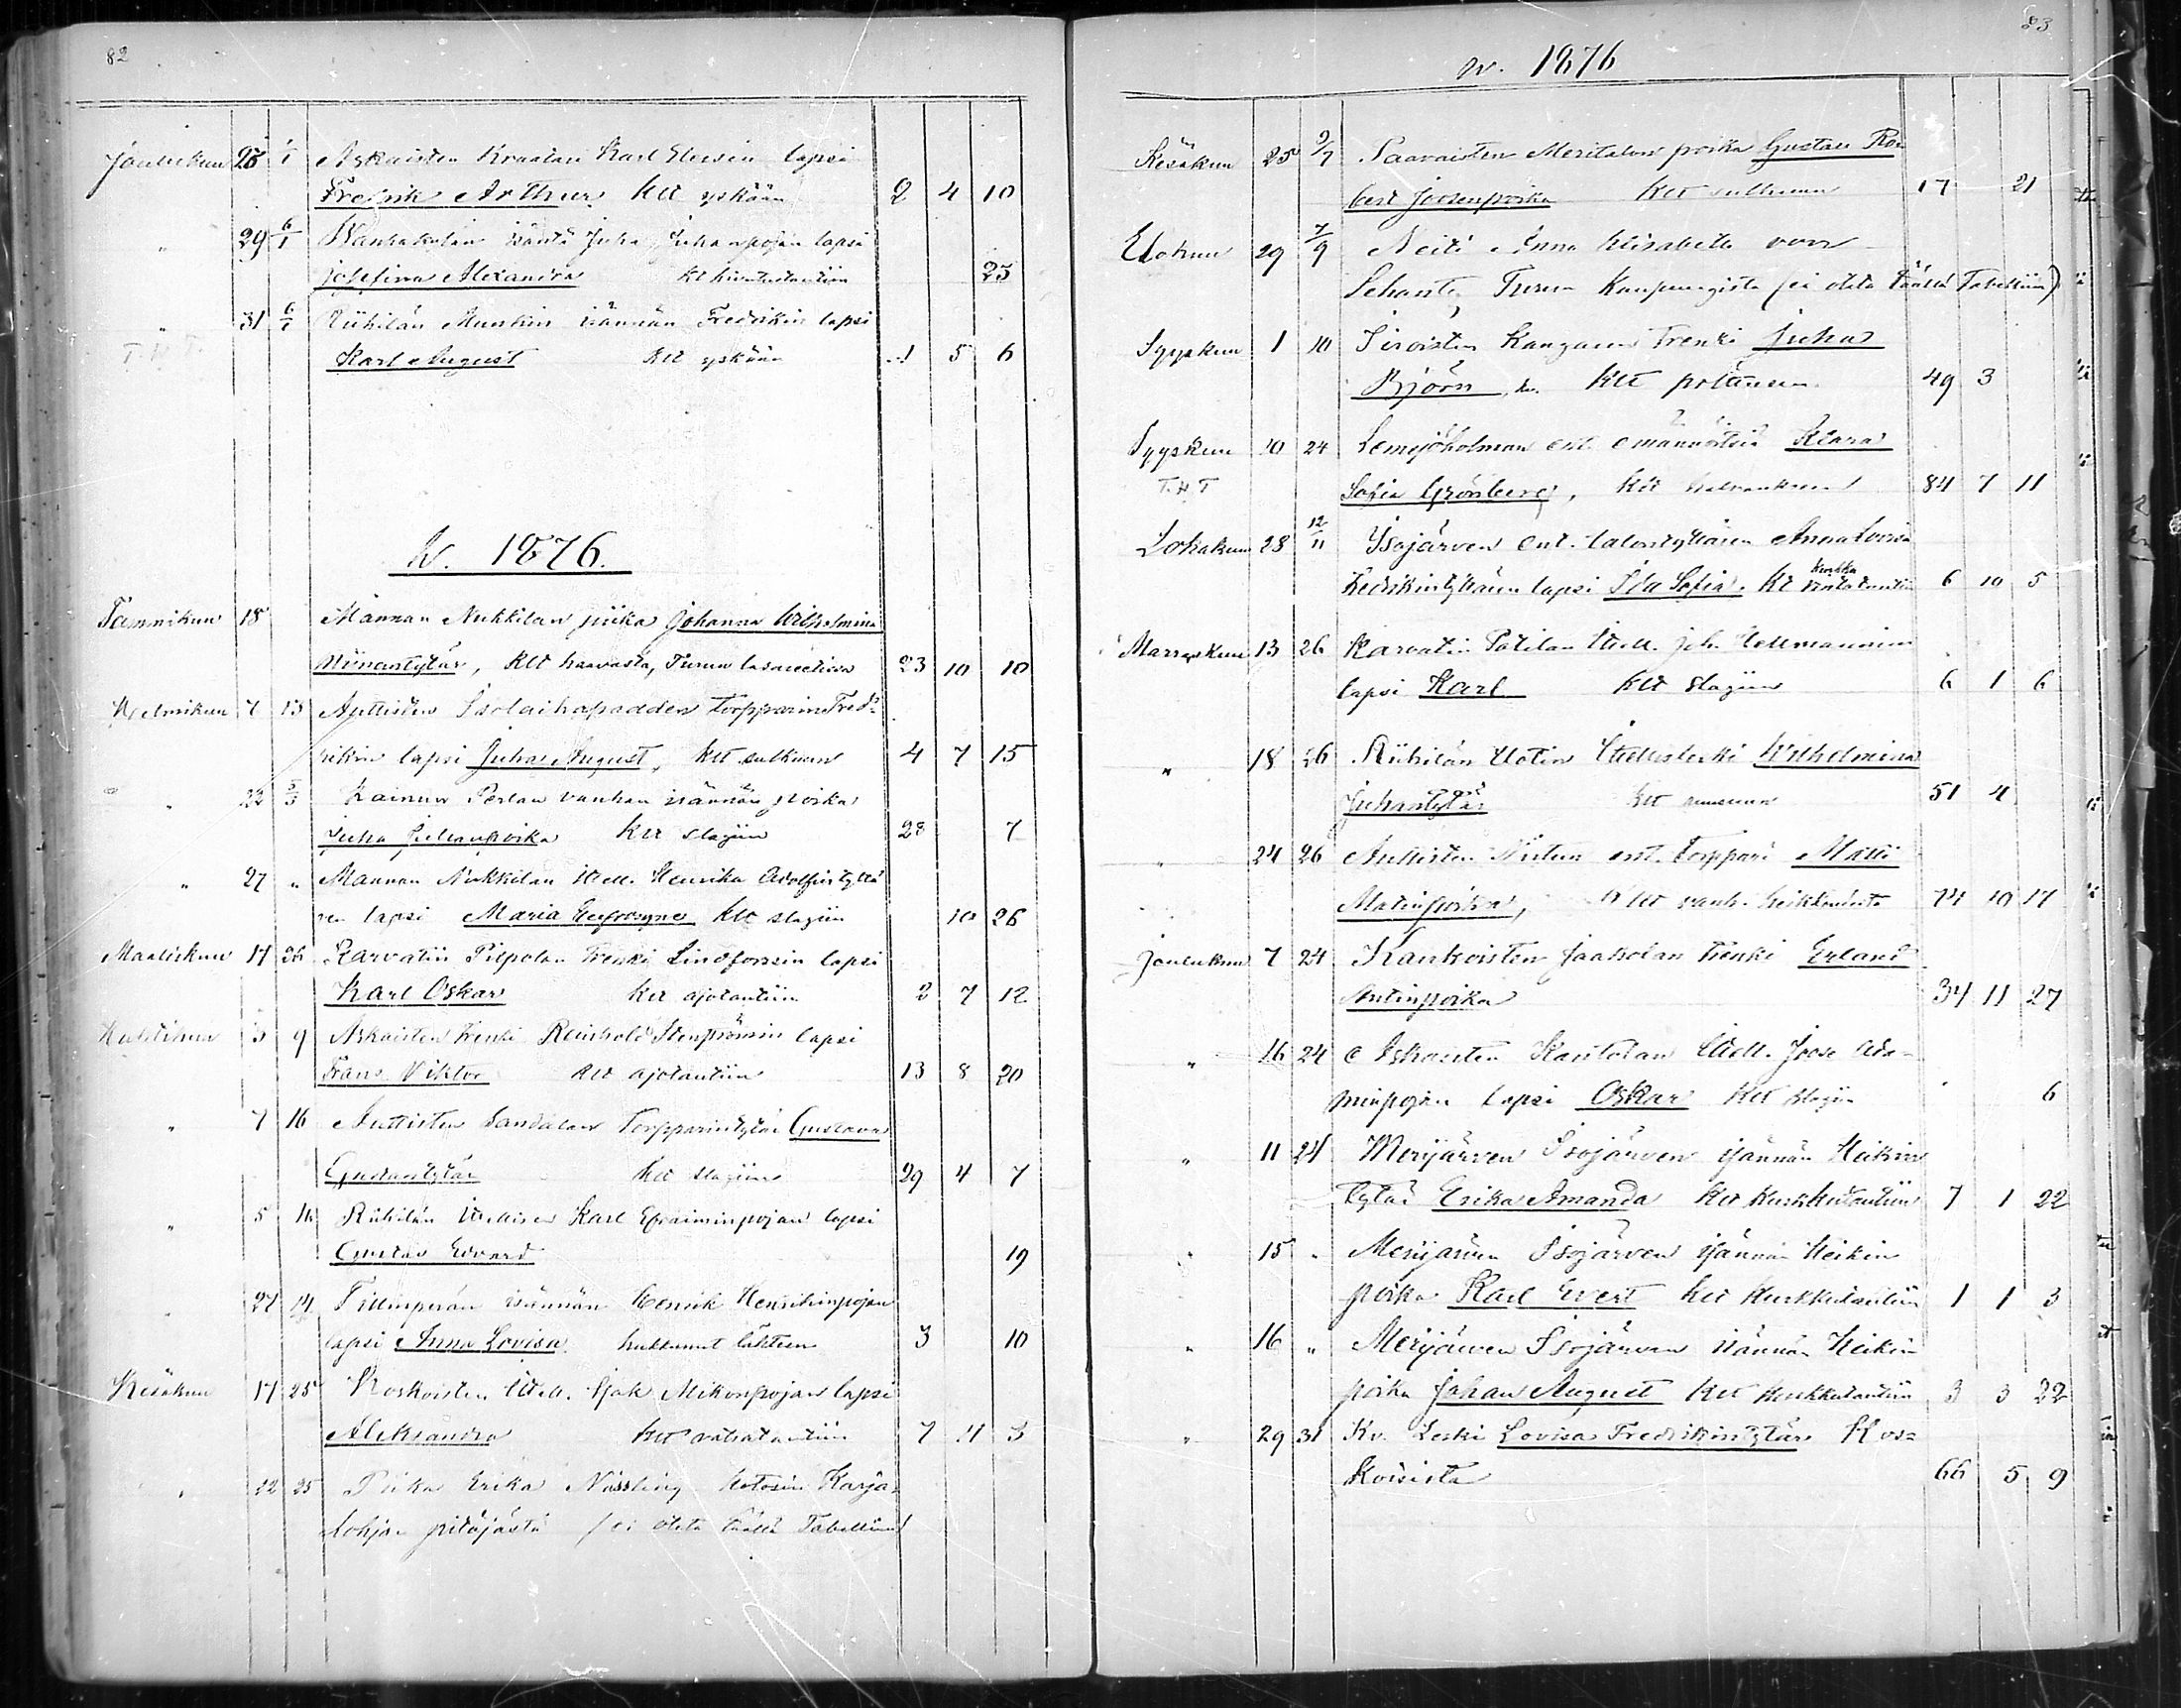 82
Joulukun 28 1/1 Askaisten Karl lapsi
Fredrik Arthur klt yskään 2 4 10
" 29 6/1 isäntä Juha Juhanpojan lapsi
Josefina Alexandra 23
" 31 6/1 Riihilän isännän Fredrikin lapsi
T. H. T. Karl August klt yskään 1 5 6
W. 1876.
Tammikun 18 Männan Nukkilan piika Johanna Wilhelmina
klt haavasta, Turun 23 10 10
Helmikun 7 13 Auttisten torpparin Fred-
rikin lapsi Juha August, klt 4 7 15
" 22 5/3 Kainun vanhan isännän poika
Juha Juhanpoika klt slagiin 28 7
" 27 " Männan Nukkilan Itell. Henrika Adolfintyttä
ren lapsi Maria Eufrosyne klt slagiin 10 26
Maaliskun 17 26 Karvatin Piipolan trenki Lindforssin lapsi
Karl Oskar klt ajotautiin 2 7 12
Huhtikun 3 9 Askaisten trenki Reinhold lapsi
Frans Viktor klt ajotautiin 13 8 20
" 7 16 Auttisten Sandalan Torpparintytär Gustava
klt slagiin 29 4 7
" 5 16 Riihilän Karl Efraiminpojan lapsi
Gustav Edvard 19
" 27 14 isännän Henrik Henrikinpojan
lapsi Anna Lovisa hukkunut lähteen 3 10
Kesäkun 17 25 Koskoisten Itell. Isak Mikonpojan lapsi
Aleksandra klt 7 11 3
" 22 25 Piika Erika Nissling kotosin Karja-
lohjan pitäjästä (ei oteta täällä Tabelliin)
83
w. 1876
Kesäkun 25 9/7 Saavaisten Meritalon poika Gustav Ro-
bert Joosenpoika klt 17 21
Elokun 29 7/9 Neiti Anna Elisabetta von
Schantz, Turun kaupungista (ei oteta täällä Tabelliin)
Syyskun 1 10 Siroisten Kangasen trenki Juha
Björn, klt 49 3
Syyskun 10 24 Lempöholman ent. emännöitsiä Klara
T. H. T Sofia Grönberg, klt 84 7 11
Lokakun 28 12/11 Ysojärven ent. talontyttären Anna Lovisa
Fredrikintyttären lapsi Ida Sofia. klt kurkku 6 10 5
Marraskun 13 26 Karvatin Itell. Joh. Hellmannin
lapsi Karl klt slagiin 6 1 6
" 18 26 Riihilän Uotin Itellisleski Wilhelmina
Juhantytär klt 51 4
" 24 26 Auttisten ent. torppari Matti
Matinpoika, klt vanh. heikkoudesta 74 10 17
Joulukun 7 24 Kankoisten Jaakolan trenki Erland
Antinpoika 34 11 27
" 16 24 Askaisten Kantolan Itell. Joose Ada-
minpojan lapsi Oskar klt slagiin 6
" 11 24 Merijärven Isojärven isännän Heikin
tytär Erika Amanda klt kurkkutautiin 7 1 22
" 15 " Merijärven Isojärven isännän Heikin
poika Karl Evert klt kurkkutautiin 1 1 3
" 16 " Merijärven Isojärven isännän Heikin
poika Johan August klt kurkkutautiin 3 3 22
" 29 31 Kv. Leski Lovisa Fredrikintytär Kos-
koisista 66 5 9